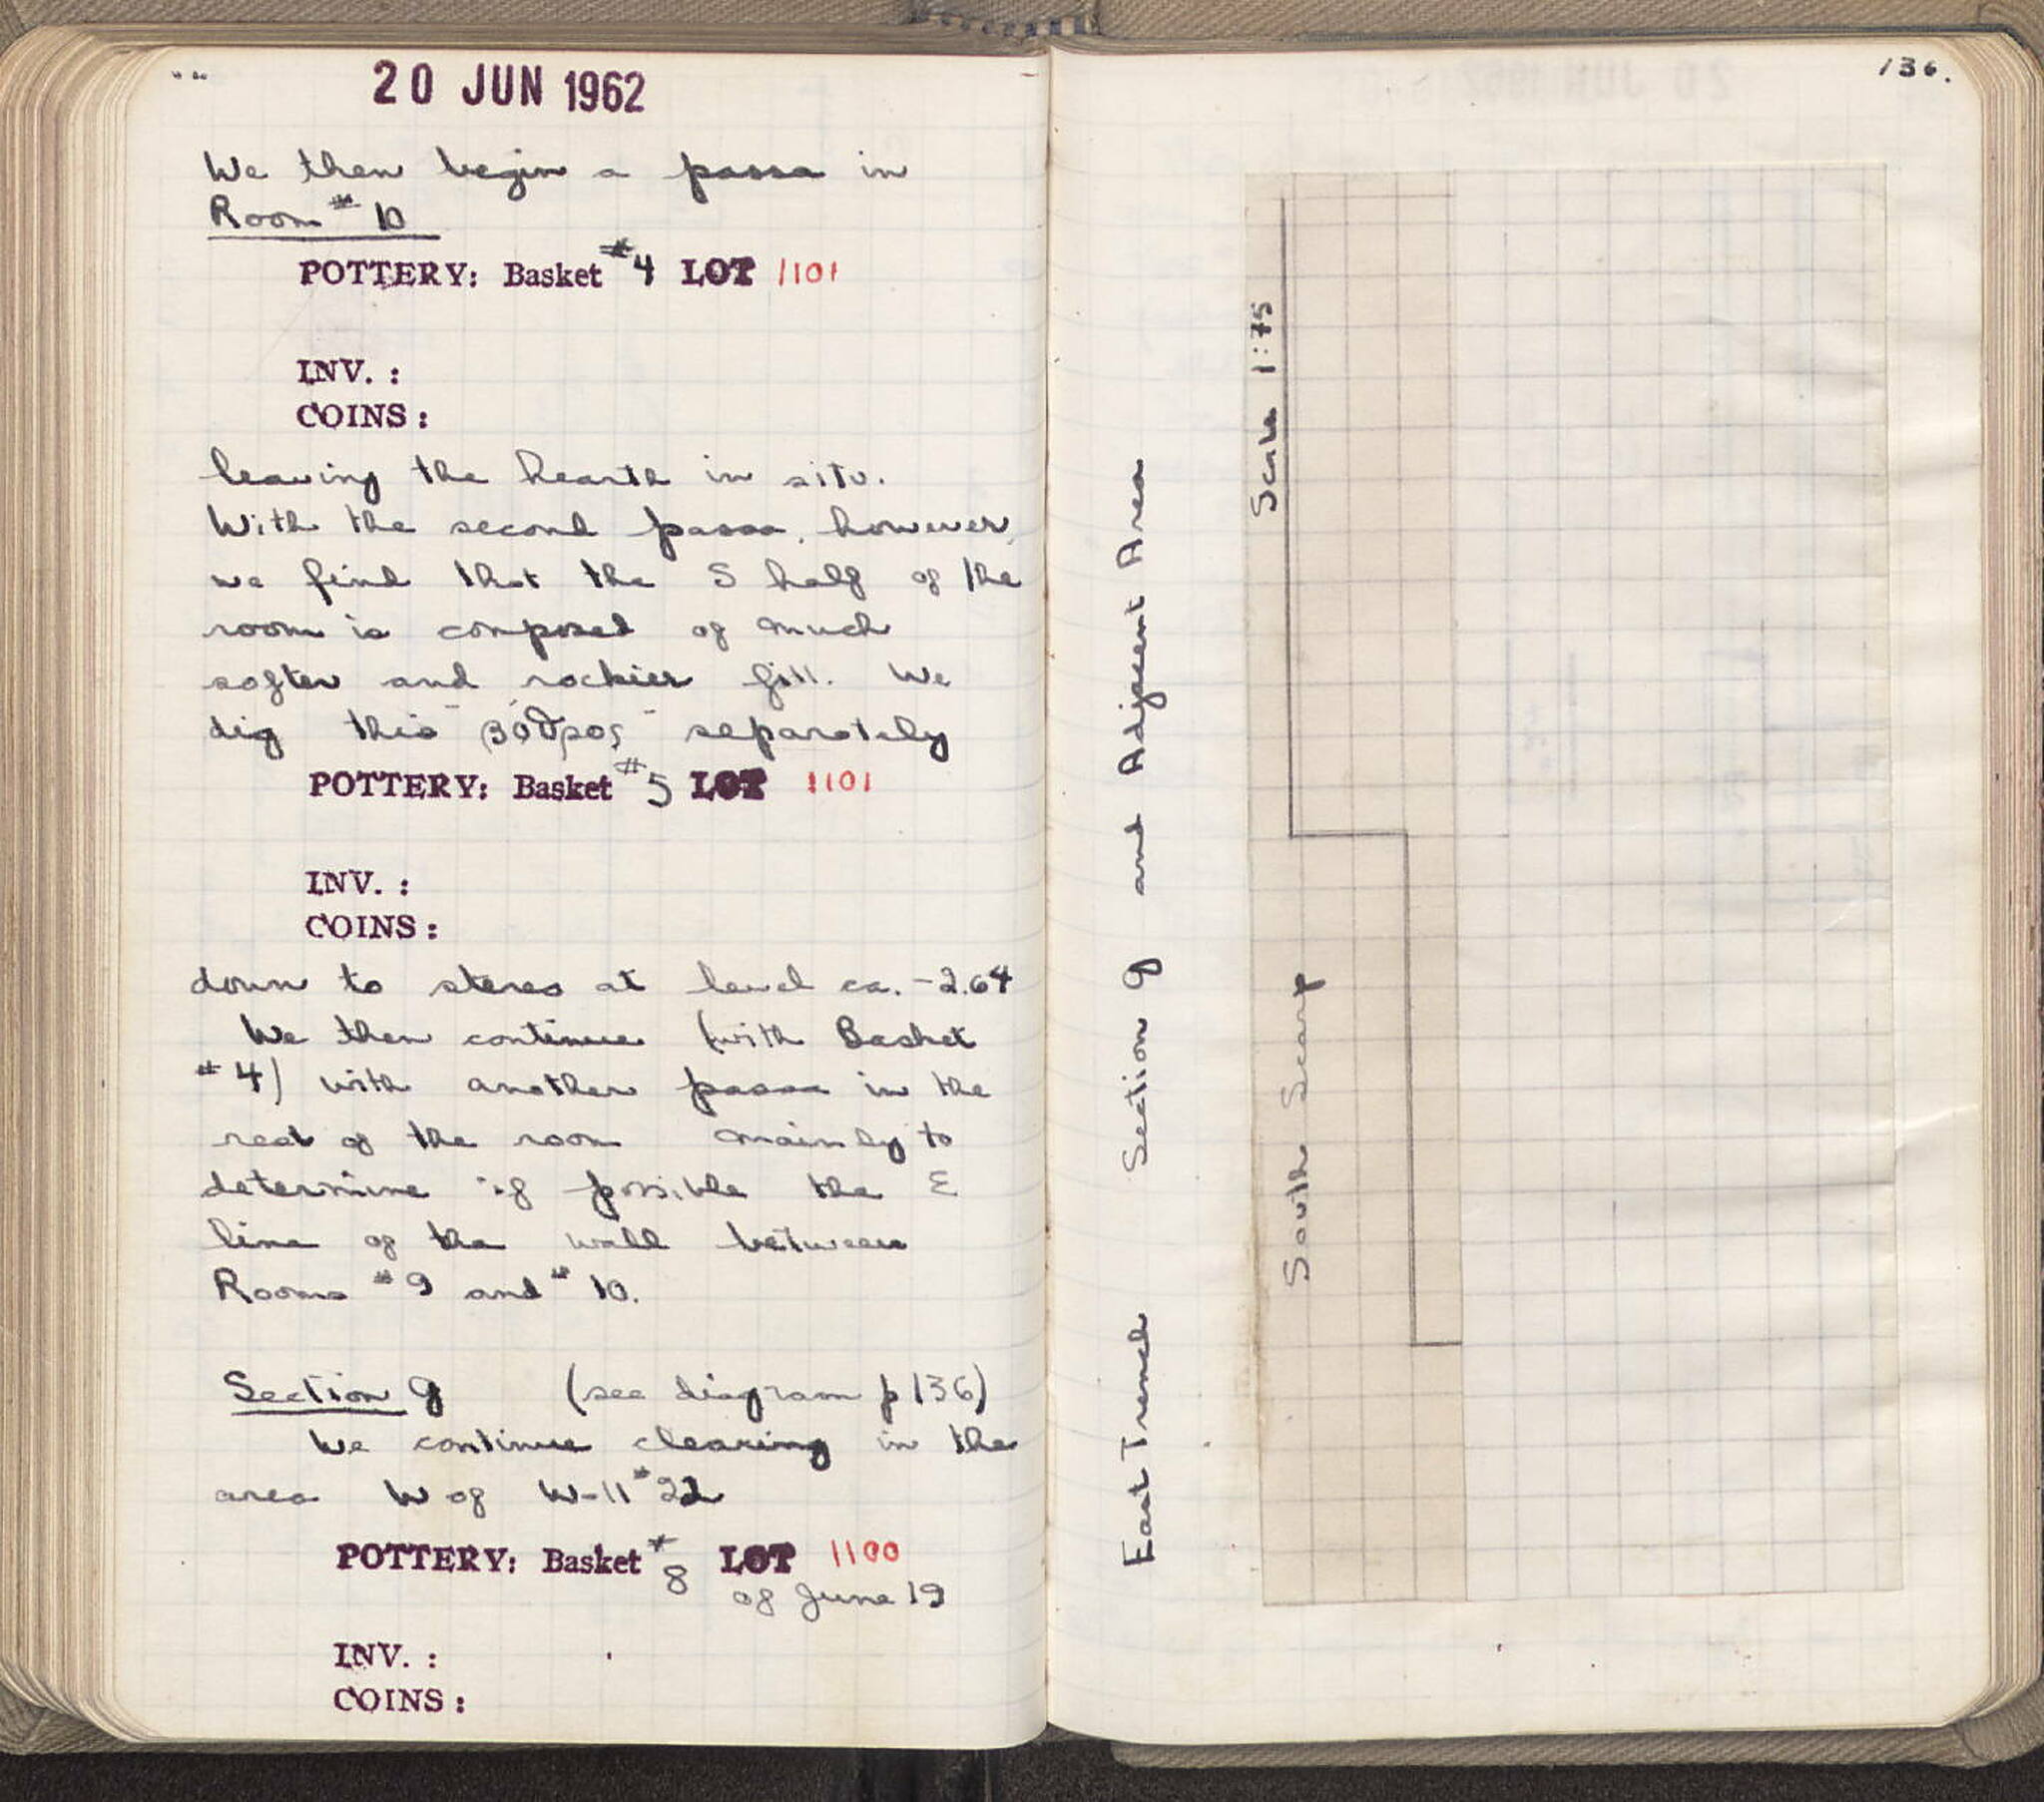 20 JUN 1962
We then begin a passa in
Room #10
POTTERY: Basket #4 LOT 1101
INV. :
COINS :
leaving the hearth in situ.
With the second passa, however,
we find that the S half of the
room is composed of much
softer and rockier fill. We
dig this "βόθρος" separately
POTTERY: Basket #5 LOT 1101
INV. :
COINS :
down to stereo at level ca. -2.64
We then continue (with Basket
#4) with another passa in the
rest of the room mainly to
determine if possible the E
line of the wall between
Rooms #9 and #10.
Section g (see diagram p 136)
We continue clearing in the
area W of W-11 #22
POTTERY: Basket #8 LOT 1100
of June 19
INV. :
COINS :
136.
East Trench Section g and Adjacent Area
Scale 1:75
South Scarp